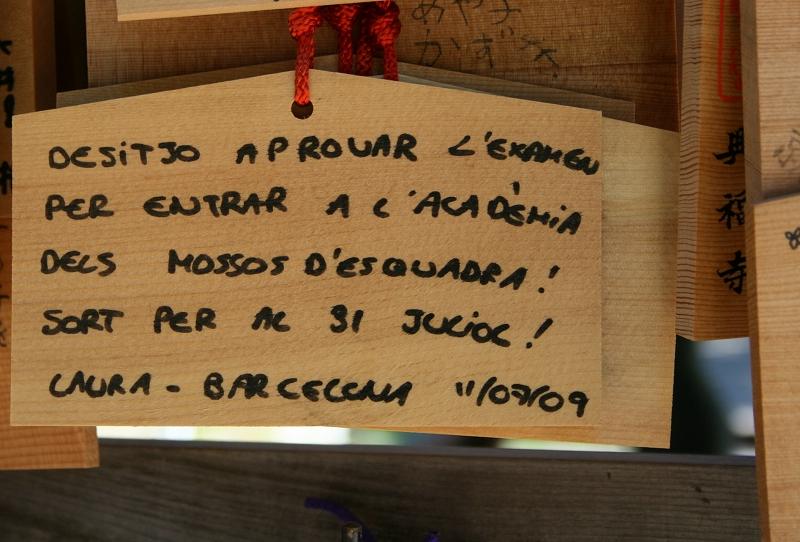 めやよ
かず
DESiTJO APROVAR L'EXAMEN
PER ENTRAR A L'ACADÈMIA
DELS MOSSOS D'ESQUADRA!
SORT PER AL 31 JULIOL!
LAURA - BARCELONA 11/07/09
興福寺